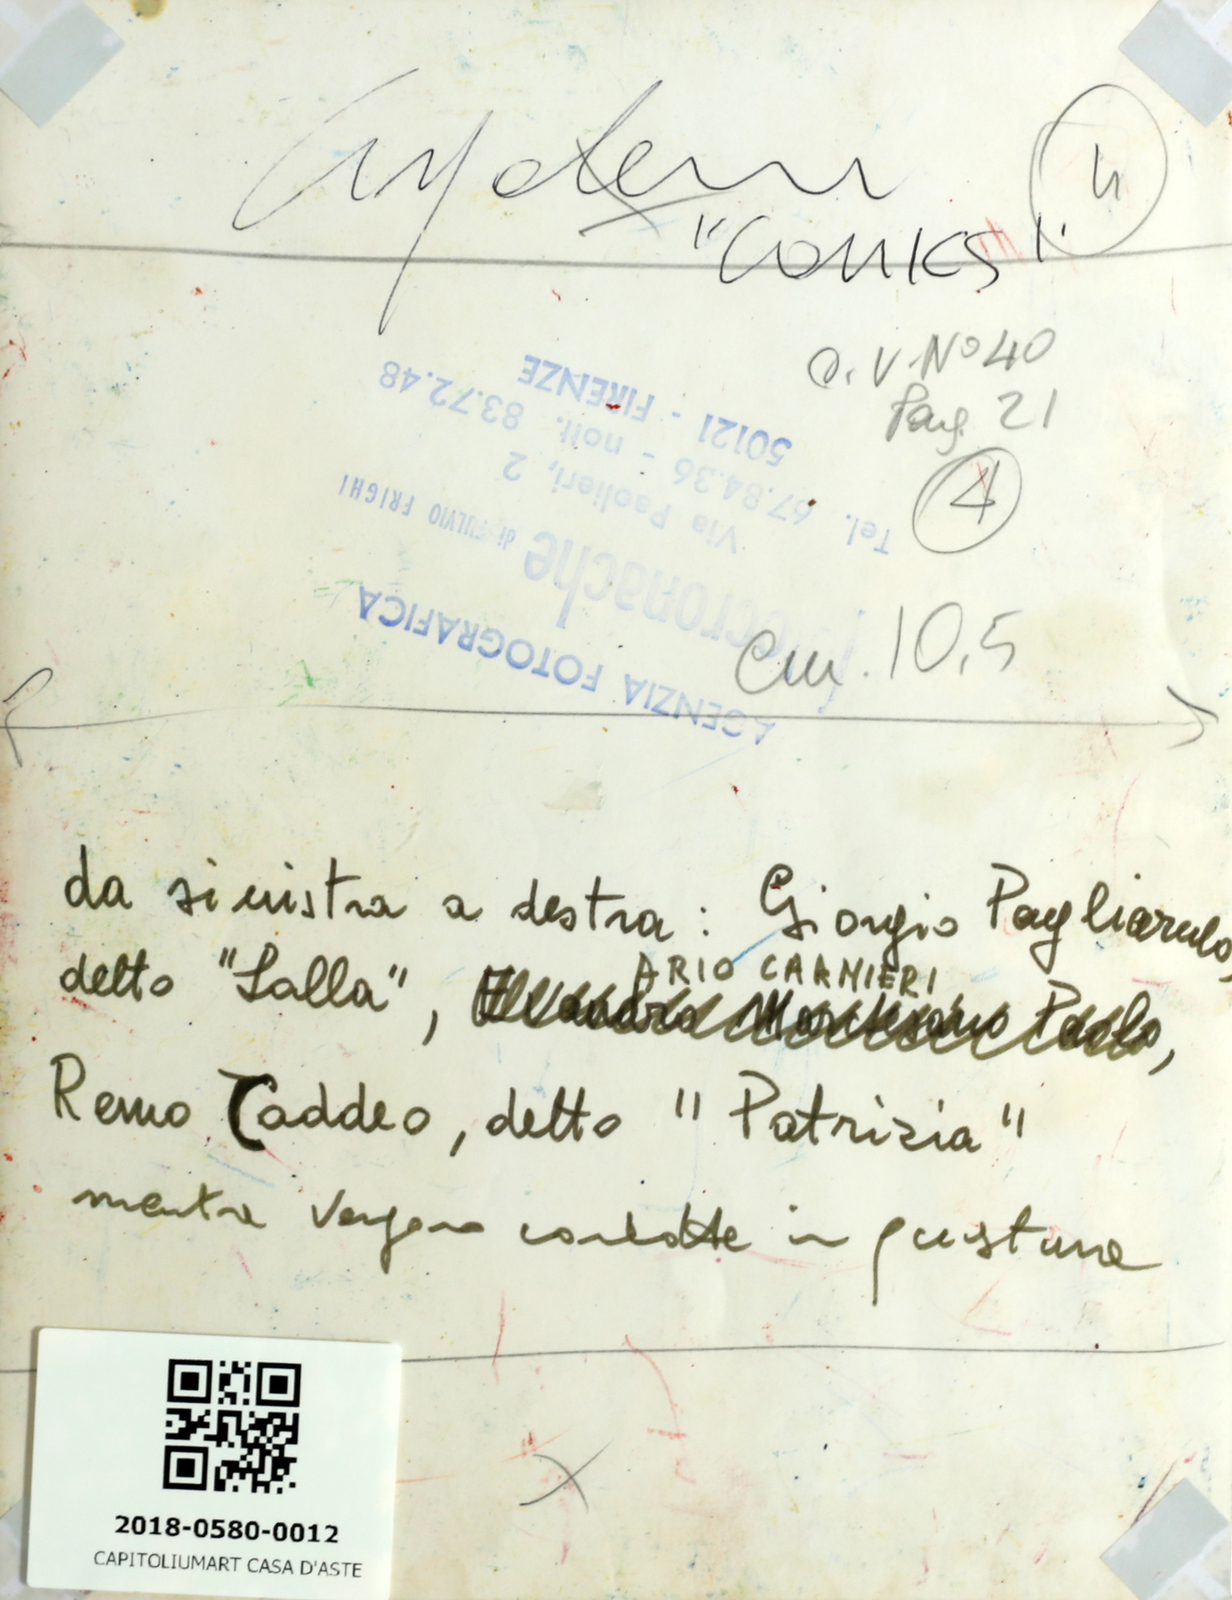 "COMICS"
4
O.V. N° 40
Pag. 21
4
AGENZIA FOTOGRAFICA
di FULVIO FRIGHI
Via Paolieri, 2
Tel. 67.84.36 - nott. 83.72.48
50121 - FIRENZE
cm. 10,5
da sinistra a destra: Giorgio Pagliarulo,
detto "Lalla", ARIO CARNIERI
Remo Taddeo, detto "Patrizia"
mentre vengono condotte in questura
2018-0580-0012
CAPITOLIUMART CASA D'ASTE